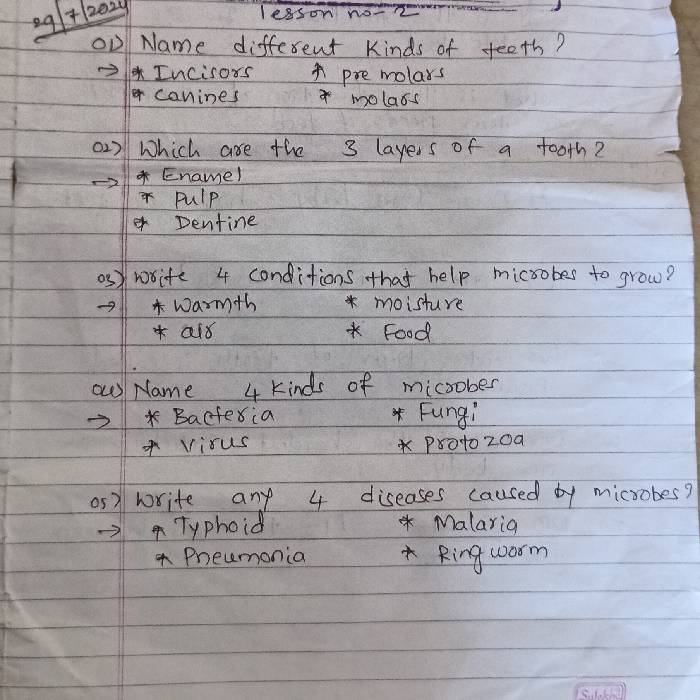 29/7/2024
lesson no-2
01) Name different kinds of teeth?
→ * Incisors * pre molars
* Canines * molars
02) Which are the 3 layers of a tooth?
→ * Enamel
* Pulp
* Dentine
03) Write 4 conditions that help microbes to grow?
→ * Warmth * moisture
* air * Food
04) Name 4 kinds of microbes
→ * Bacteria * Fungi
* Virus * Protozoa
05) Write any 4 diseases caused by microbes?
→ * Typhoid * Malaria
* Pneumonia * Ring worm